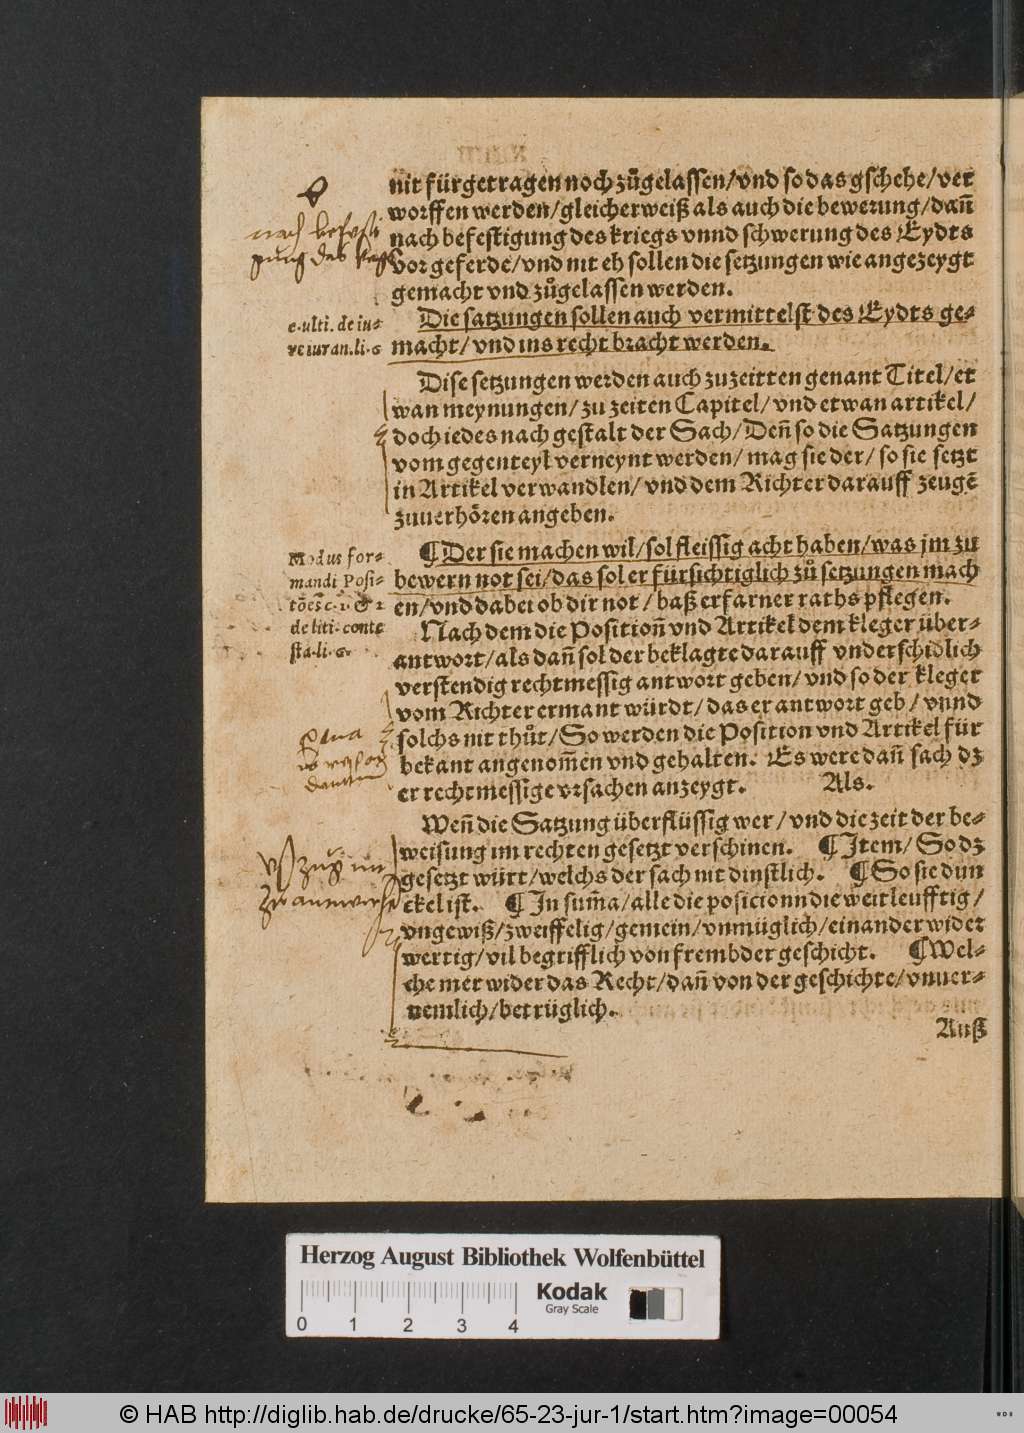 nit fürgetragen noch zůgelassen/vnd so das gschehe/ver
worffen werden/gleicherweiß als auch die bewerung/dañ
nach befestigung des kriegs vnnd schwerung des Eydts
vor geferde/vnd nit eh sollen die setzungen wie angezeygt
gemacht vnd zůgelassen werden.
nach befesti
gung des kriegs
Die satzungen sollen auch vermittelst des Eydts ge-
macht/vnd ins recht bracht werden.
c.ulti. de iu-
reiuran.li.6
Dise setzungen werden auch zuzeitten genant Titel/et
wan meynungen/zu zeiten Capitel/vnd etwan artikel/
doch iedes nach gestalt der Sach/Deñ so die Satzungen
vom gegenteyl verneynt werden/mag sie der/so sie setzt
in Artikel verwandlen/vnd dem Richter darauff zeugē
zuuerhören angeben.
¶Der sie machen wil/sol fleissig acht haben/was jm zu
bewern not sei/das sol er fürsichtiglich zů setzungen mach
en/vnd dabei ob dir not/baß erfarner raths pflegen.
Modus for-
mandi Posi-
tōēs c.1. & 2
de liti. conte
sta.li.6.
Nach dem die Positioñ vnd Artikel dem kleger über-
antwort/als dañ sol der beklagte darauff vnderschidlich
verstendig rechtmessig antwort geben/vnd so der kleger
vom Richter ermant würdt/das er antwort geb/vnnd
solchs nit thůt/So werden die Position vnd Artikel für
bekant angenom̄en vnd gehalten. Es were dañ sach dz
er rechtmessige vrsachen anzeygt. Als.
Weñ die Satzung überflüssig wer/vnd die zeit der be-
weisung im rechten gesetzt verschinen. ¶Item/So dz
gesetzt würt/welchs der sach nit dinstlich. ¶So sie dun
ckel ist. ¶In sum̄a/alle die posicionn die weitleufftig/
vngewiß/zweiffelig/gemein/vnmüglich/einander wider
wertig/vil begrifflich von frembder geschicht. ¶Wel-
che mer wider das Recht/dañ von der geschichte/vnuer-
nemlich/betrüglich.
Auß
Herzog August Bibliothek Wolfenbüttel
Kodak
Gray Scale
0 1 2 3 4
© HAB http://diglib.hab.de/drucke/65-23-jur-1/start.htm?image=00054